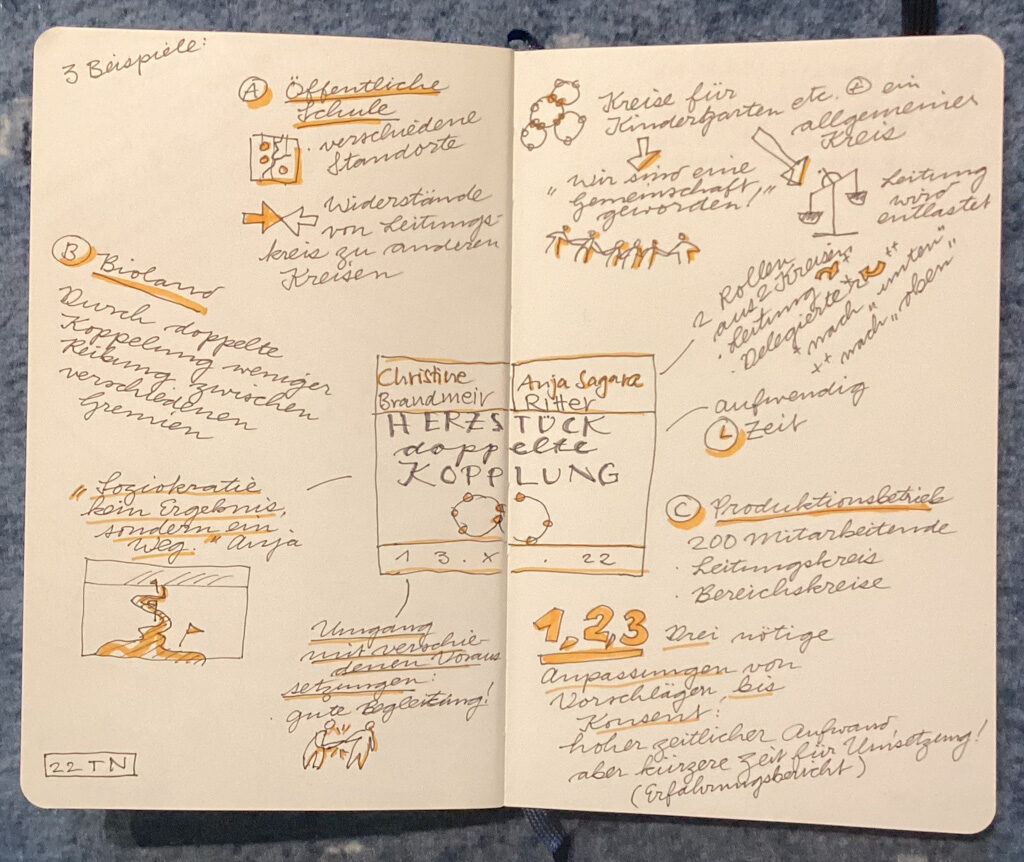 3 Beispiele:
A Öffentliche
Schule
· verschiedene
Standorte
Widerstände
von Leitungs-
kreis zu anderen
Kreisen
B Bioland
Durch doppelte
Koppelung weniger
Reibung zwischen
verschiedenen
Gremien
"Soziokratie
kein Ergebnis,
sondern ein
Weg." Anja
22 TN
Umgang
mit verschie-
denen Voraus
setzungen:
· gute Begleitung!
Christine
Brandmeir
Anja Sagara
Ritter
HERZSTÜCK
doppelte
KOPPLUNG
13.X.22
Kreise für
Kindergarten etc. + ein
allgemeiner
Kreis
"Wir sind eine
Gemeinschaft
geworden!"
Leitung
wird
entlastet
2 Rollen
aus 2 Kreisen
· Leitung +
· Delegierte ++
+ nach "unten"
++ nach "oben"
aufwendig
Zeit
C Produktionsbetrieb
200 Mitarbeitende
· Leitungskreis
· Bereichskreise
1,2,3 Drei nötige
Anpassungen von
Vorschlägen, bis
Konsent:
hoher zeitlicher Aufwand,
aber kürzere Zeit für Umsetzung!
(Erfahrungsbericht)